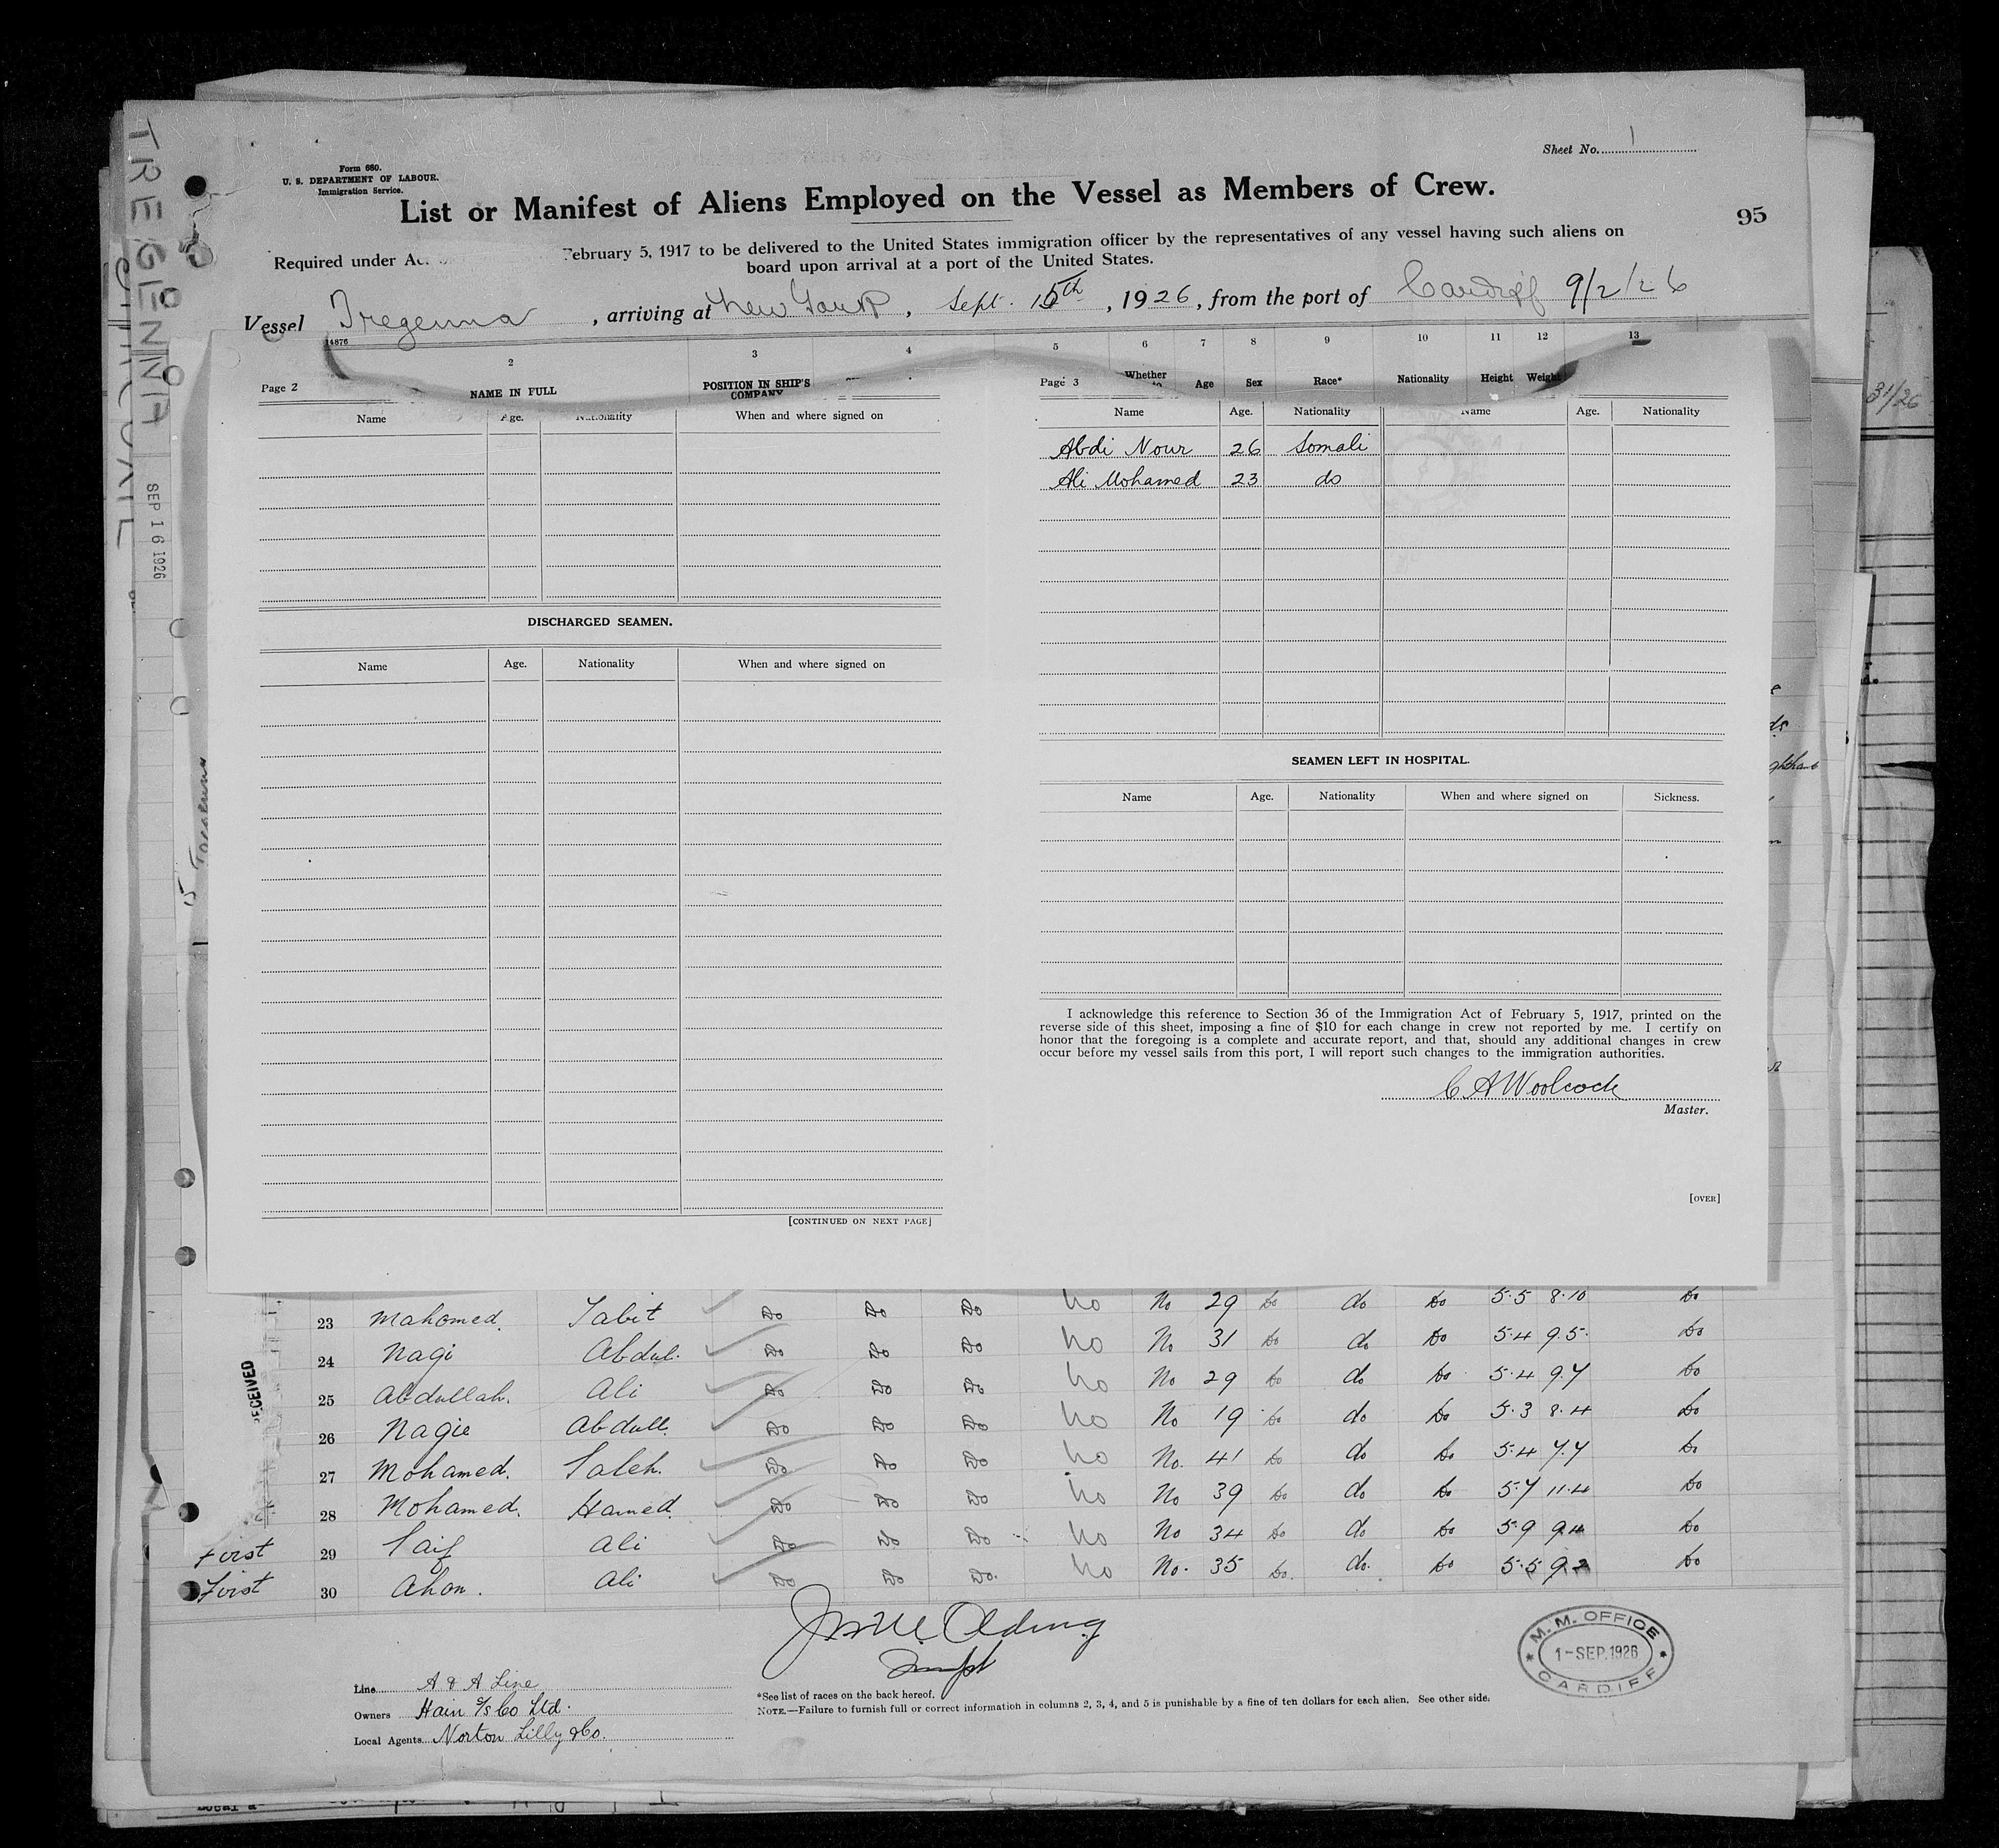 Sheet No. 1
Form 680.
U. S. DEPARTMENT OF LABOUR.
Immigration Service.
List or Manifest of Aliens Employed on the Vessel as Members of Crew.
95
Required under Ac. February 5, 1917 to be delivered to the United States immigration officer by the representatives of any vessel having such aliens on
board upon arrival at a port of the United States.
Vessel Tregenna, arriving at New York, Sept. 15th, 1926, from the port of Cardiff 9/2/26
TREGENNA
SEP 16 1926
31/26
4876
2 3 4 5 6 7 8 9 10 11 12 13
Page 2 NAME IN FULL POSITION IN SHIP'S COMPANY
Page 3 Whether Age Sex Race* Nationality Height Weight
Name Age. Nationality When and where signed on
Name Age. Nationality Name Age. Nationality
Abdi Nour 26 Somali
Ali Mohamed 23 do
DISCHARGED SEAMEN.
Name Age. Nationality When and where signed on
[CONTINUED ON NEXT PAGE]
SEAMEN LEFT IN HOSPITAL.
Name Age. Nationality When and where signed on Sickness.
I acknowledge this reference to Section 36 of the Immigration Act of February 5, 1917, printed on the
reverse side of this sheet, imposing a fine of $10 for each change in crew not reported by me. I certify on
honor that the foregoing is a complete and accurate report, and that, should any additional changes in crew
occur before my vessel sails from this port, I will report such changes to the immigration authorities.
C A Woolcock
Master.
[OVER]
23 Mahomed. Tabit Do Do Do No No 29 Do do Do 5.5 8.10 Do
24 Nagi Abdul. Do Do Do No No 31 Do do Do 5.4 9.5 Do
25 Abdullah. Ali Do Do Do No No 29 Do do Do 5.4 9.7 Do
26 Nagie Abdull. Do Do Do No No 19 Do do Do 5.3 8.4 Do
27 Mohamed. Saleh. Do Do Do No No. 41 Do do Do 5.4 7.7 Do
28 Mohamed. Hamed. Do Do Do No No 39 Do do Do 5.7 11.4 Do
First 29 Saif Ali Do Do Do No No 34 Do do Do 5.9 9.4 Do
First 30 Ahon. Ali Do Do Do. No No. 35 Do. do. Do 5.5 9.2 Do
Line A & A Line
Owners Hain S/S Co Ltd.
Local Agents Norton Lilly & Co.
*See list of races on the back hereof.
NOTE.—Failure to furnish full or correct information in columns 2, 3, 4, and 5 is punishable by a fine of ten dollars for each alien. See other side.
M. M. OFFICE
1-SEP.1926
CARDIFF